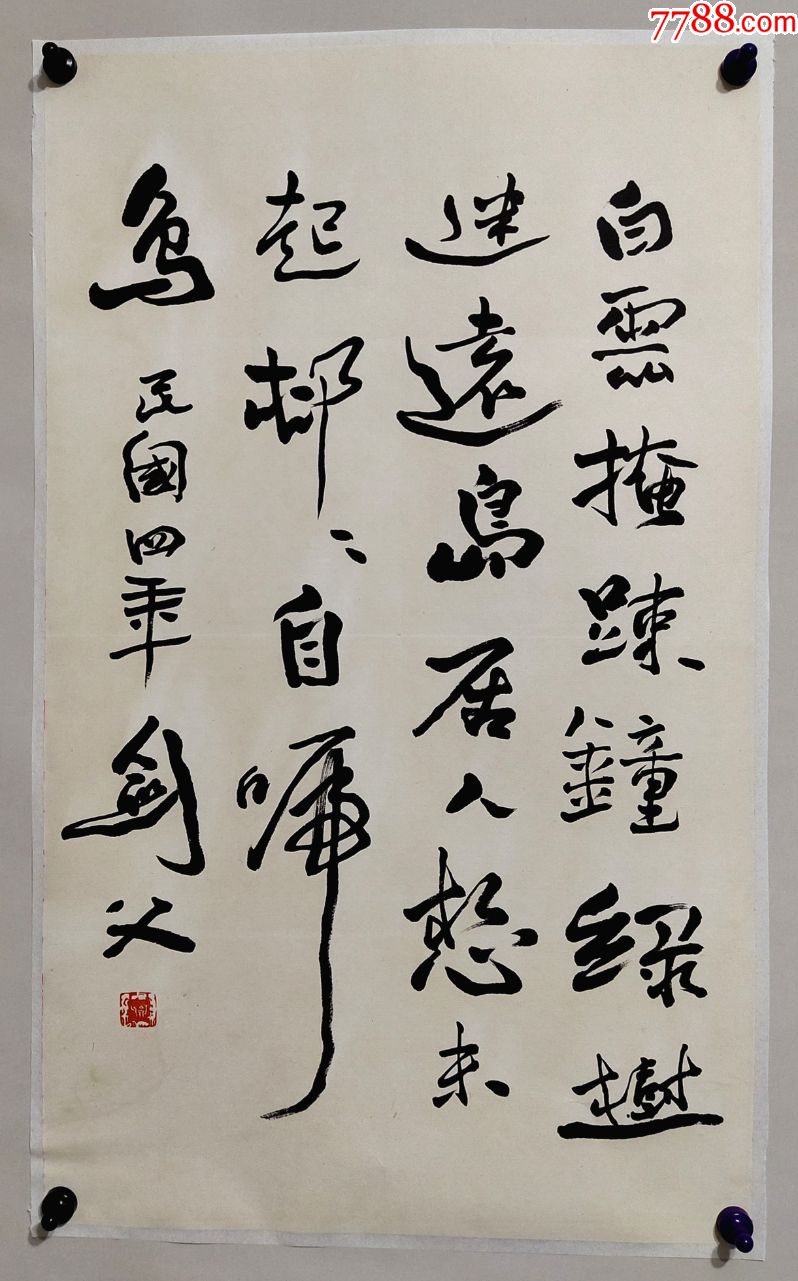 7788.com
白雲掩踈鐘綠樹
迷遠島居人憩未
起邨〻自啼
鳥 民國四年 劍父